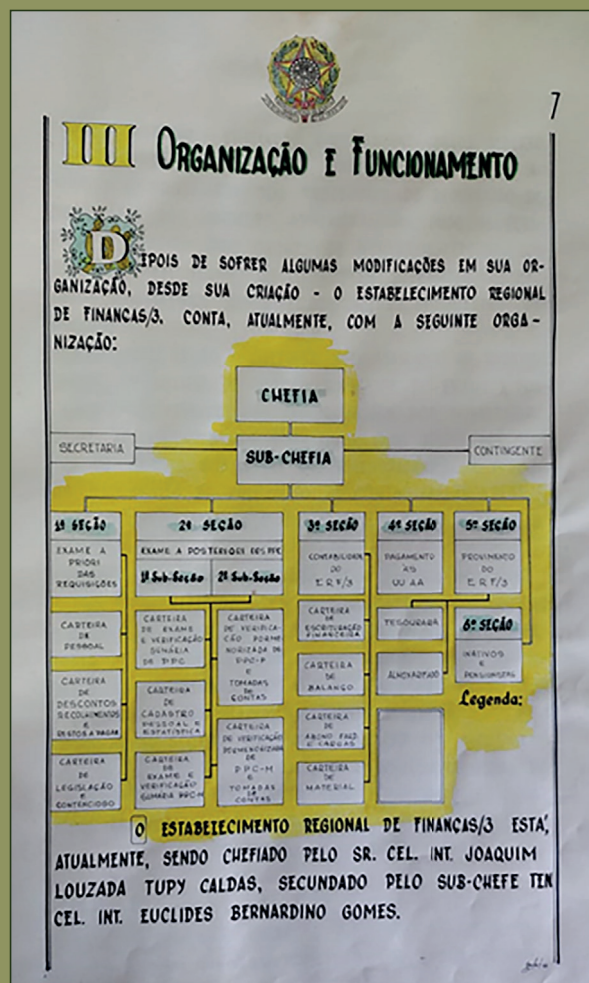 7
III ORGANIZAÇÃO E FUNCIONAMENTO
DEPOIS DE SOFRER ALGUMAS MODIFICAÇÕES EM SUA OR-
GANIZAÇÃO, DESDE SUA CRIAÇÃO - O ESTABELECIMENTO REGIONAL
DE FINANÇAS/3. CONTA, ATUALMENTE, COM A SEGUINTE ORGA-
NIZAÇÃO:
CHEFIA
SECRETARIA
SUB-CHEFIA
CONTINGENTE
1ª SEÇÃO
EXAME A
PRIORI
DAS
REQUISIÇÕES
CARTEIRA
DA
PESSOAL
CARTEIRA
DE
DESCONTOS
RECOLHIMENTOS
E
RESTOS A PAGAR
CARTEIRA
DE
LEGISLAÇÃO
E
CONTENCIOSO
2ª SEÇÃO
EXAME A POSTERIORI DOS
1ª SUB-SEÇÃO
CARTEIRA
DE EXAME
E VERIFICAÇÃO
DE
CARTEIRA
DE
CADASTRO
PESSOAL E
ESTATÍSTICA
CARTEIRA
DE
EXAME E
VERIFICAÇÃO
SUMÁRIA PPC-M
2ª SUB-SEÇÃO
CARTEIRA
DE VERIFICA-
ÇÃO PORME-
NORIZADA DE
PPC-P
E
TOMADAS
DE
CONTAS
CARTEIRA
DE VERIFICAÇÃO
PORMENORIZADA
DE
PPC-M
E
TOMADAS
DE
CONTAS
3ª SEÇÃO
CONTABILIDADE
DO
E R F/3
CARTEIRA
DE
ESCRITURAÇÃO
FINANCEIRA
CARTEIRA
DE
BALANÇO
CARTEIRA
DE
ABONO FARD.
E CARGAS
CARTEIRA
DE
MATERIAL
4ª SEÇÃO
PAGAMENTO
ÀS
UU AA
TESOURARIA
ALMOXARIFADO
5ª SEÇÃO
PROVIMENTO
DO
E R F/3
6ª SEÇÃO
INATIVOS
E
PENSIONISTAS
Legenda:
O ESTABELECIMENTO REGIONAL DE FINANÇAS/3 ESTÁ,
ATUALMENTE, SENDO CHEFIADO PELO SR. CEL. INT. JOAQUIM
LOUZADA TUPY CALDAS, SECUNDADO PELO SUB-CHEFE TEN
CEL. INT. EUCLIDES BERNARDINO GOMES.